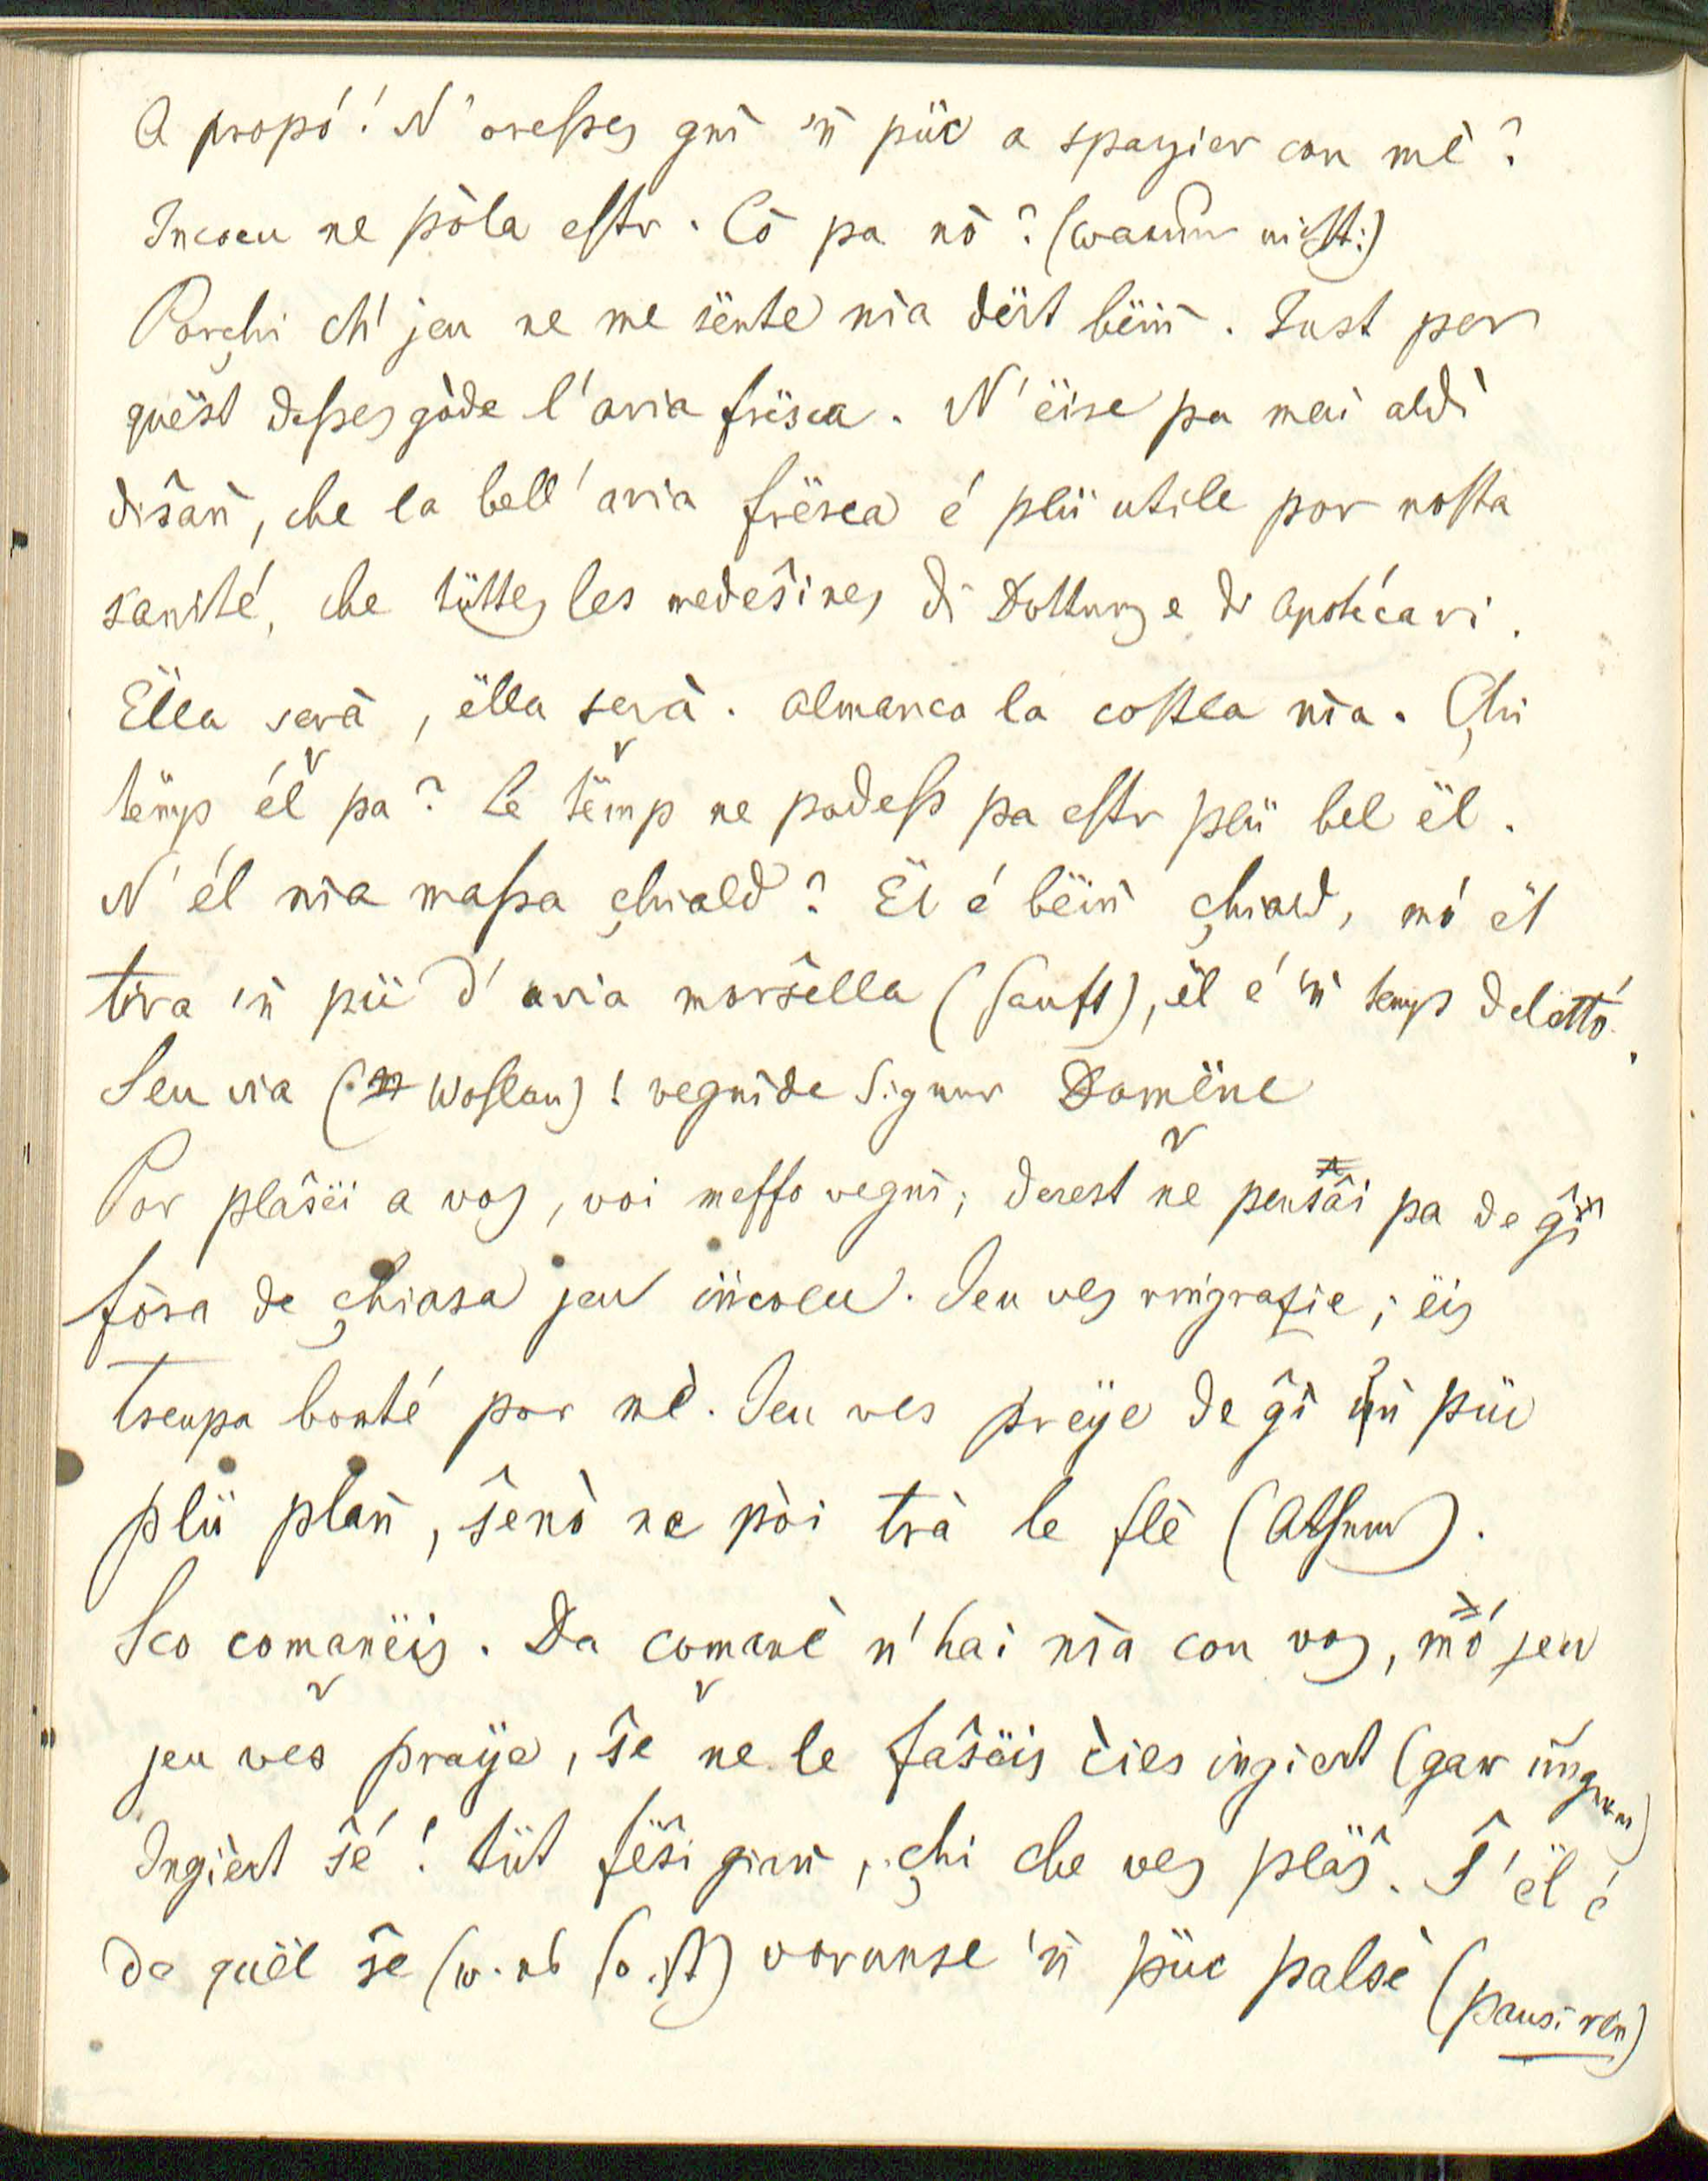 A propó! N'oresses gnì 'ñ püc a spazier con mè?
Incoeu ne pòla estr. Cò pa nò? (warum nicht:)
Porçhi ch' jeu ne me sënte nia dërt bëiñ. Just por
quëst desses gòde l'aria frësca. N'ëise pa mai aldì
diŝañ, che la bell'aria frësca é plü utile por nosta
sanité, che tüttes les medeŝines di Dotturs e di Apotécari.
Ëlla serà, ëlla serà. Almanco la costla nìa. Çhi
tëmp él pa? Le tëmp ne podess pa estr plü bel ël.
N'él nìa massa çhiald? Ël é bëiñ çhiald, mó ël
tira 'ñ pü d'aria morŝella (sanft), ël é 'ñ temp delettó.
Seu via (Woslan)! vegnide Signur Domëne
Por plaŝëi a vos, voi messo vegnì; derest ne penŝâi pa de ĝì
fòra de çhiasa jeu iñcoeu. Jeu ves ringrazie; ëis
tseupa bonté por mè. Jeu ves prëye de ĝì üñ püc
plü plañ, ŝenò ne pòi trà le flè (Athem).
Sco comanëis. Da comanè n'hai nìa con vos, mó jeu
jeu ves praÿe, ŝe ne le faŝëis èies ingiert (gar ungern)
Ingiert ŝé! tüt fëŝi gian, çhi che ves plëŝ. Ŝ'ël é
da quël ŝe (w. ab so ist) vorunse 'ñ püc palsè (pausiren)